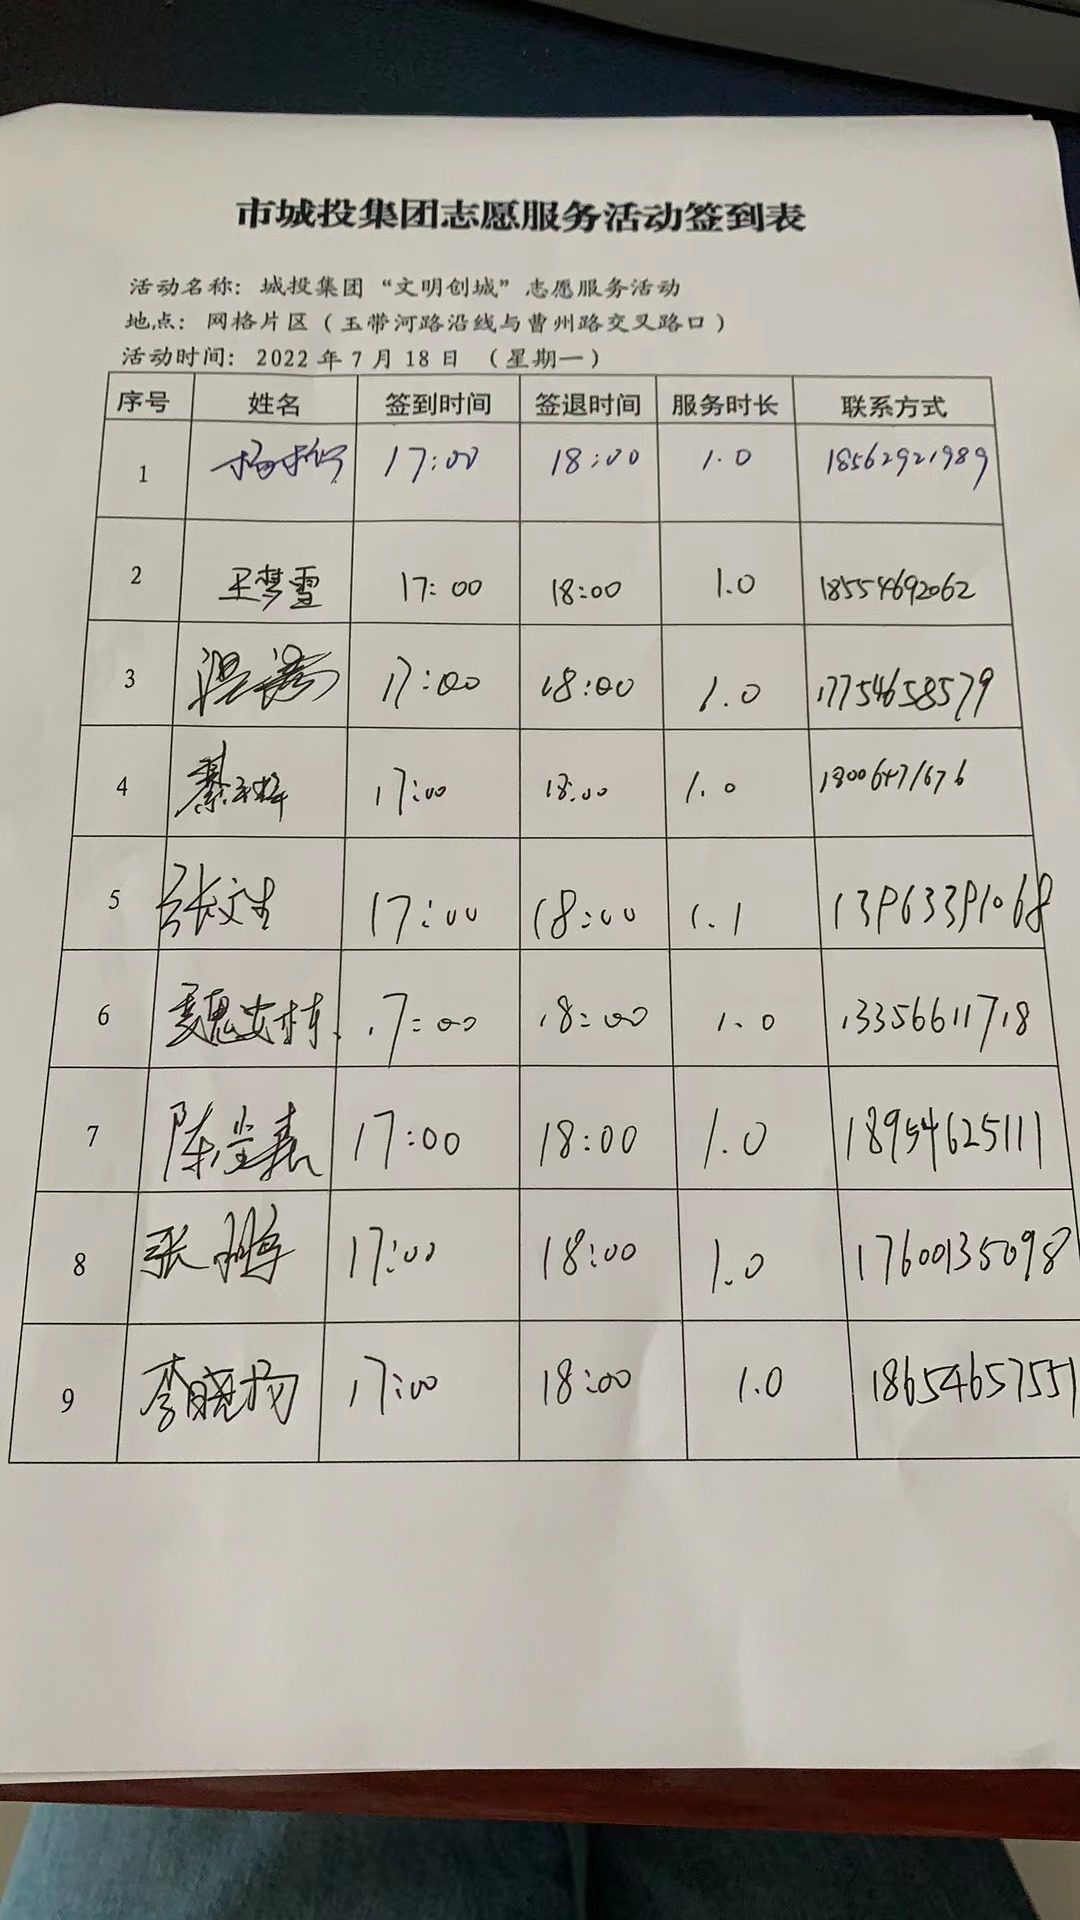 市城投集团志愿服务活动签到表
活动名称：城投集团“文明创城”志愿服务活动
地点：网格片区（玉带河路沿线与曹州路交叉路口）
活动时间：2022年7月18日 （星期一）
序号 姓名 签到时间 签退时间 服务时长 联系方式
1 17:00 18:00 1.0 18562921989
2 王梦雪 17:00 18:00 1.0 18554692062
3 17:00 18:00 1.0 17754658579
4 17:00 18:00 1.0
5 张文生 17:00 18:00 1.1 13963391068
6 17:00 18:00 1.0 13356611718
7 17:00 18:00 1.0 18954625111
8 张鹏 17:00 18:00 1.0 17600135098
9 李晓杨 17:00 18:00 1.0 18654657551